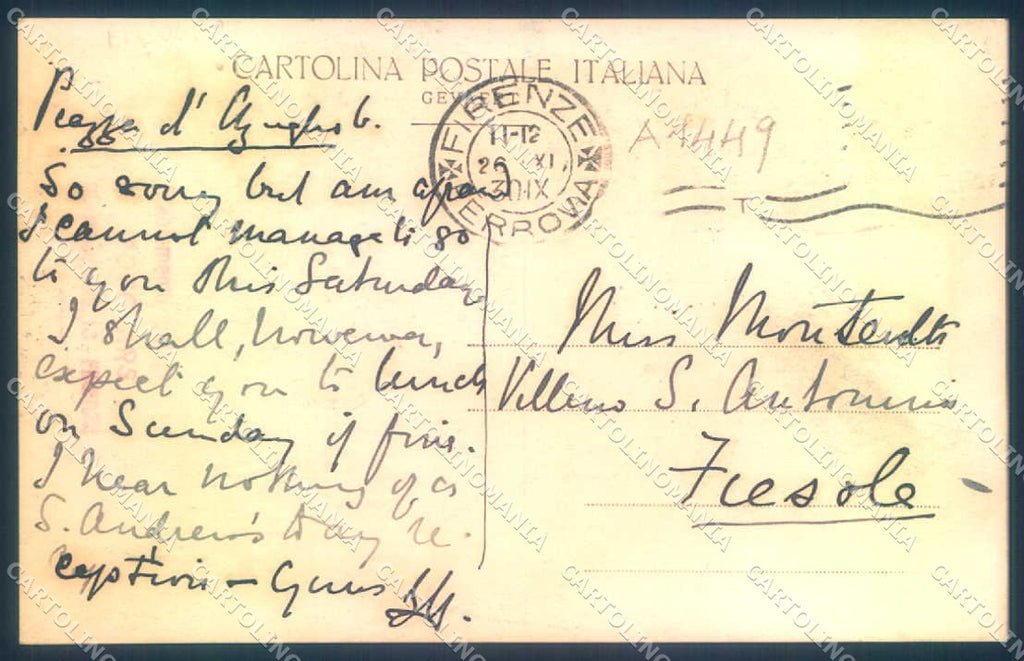 CARTOLINA POSTALE ITALIANA
GEVAERT
FIRENZE
FERROVIA
11-12
26 XI
30 IX
A7449
Piazza d'Azeglio 6.
So sorry but am afraid
I cannot manage to go
to you this Saturday
I shall, however,
expect you to lunch
on Sunday if fine.
I hear nothing of a
S. Andrew's day re-
ception — Yours
Miss
S. Antonino
Fiesole
CARTOLINOMANIA